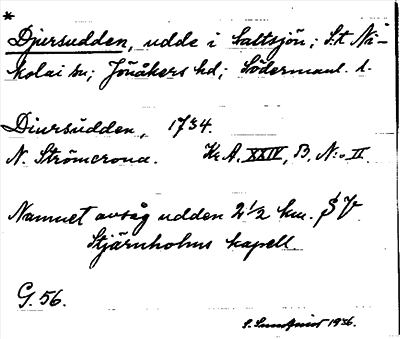 *
Djursudden, udde i Saltsjön; S:t Ni-
kolai sn; Jönåkers hd; Södermanl. l.
Diursudden, 1734.
N. Strömcrona. Kr. A. XXIV, B, N:o II.
Namnet avsåg udden 2 1/2 km. S V
Stjärnholms kapell
G. 56.
1936.